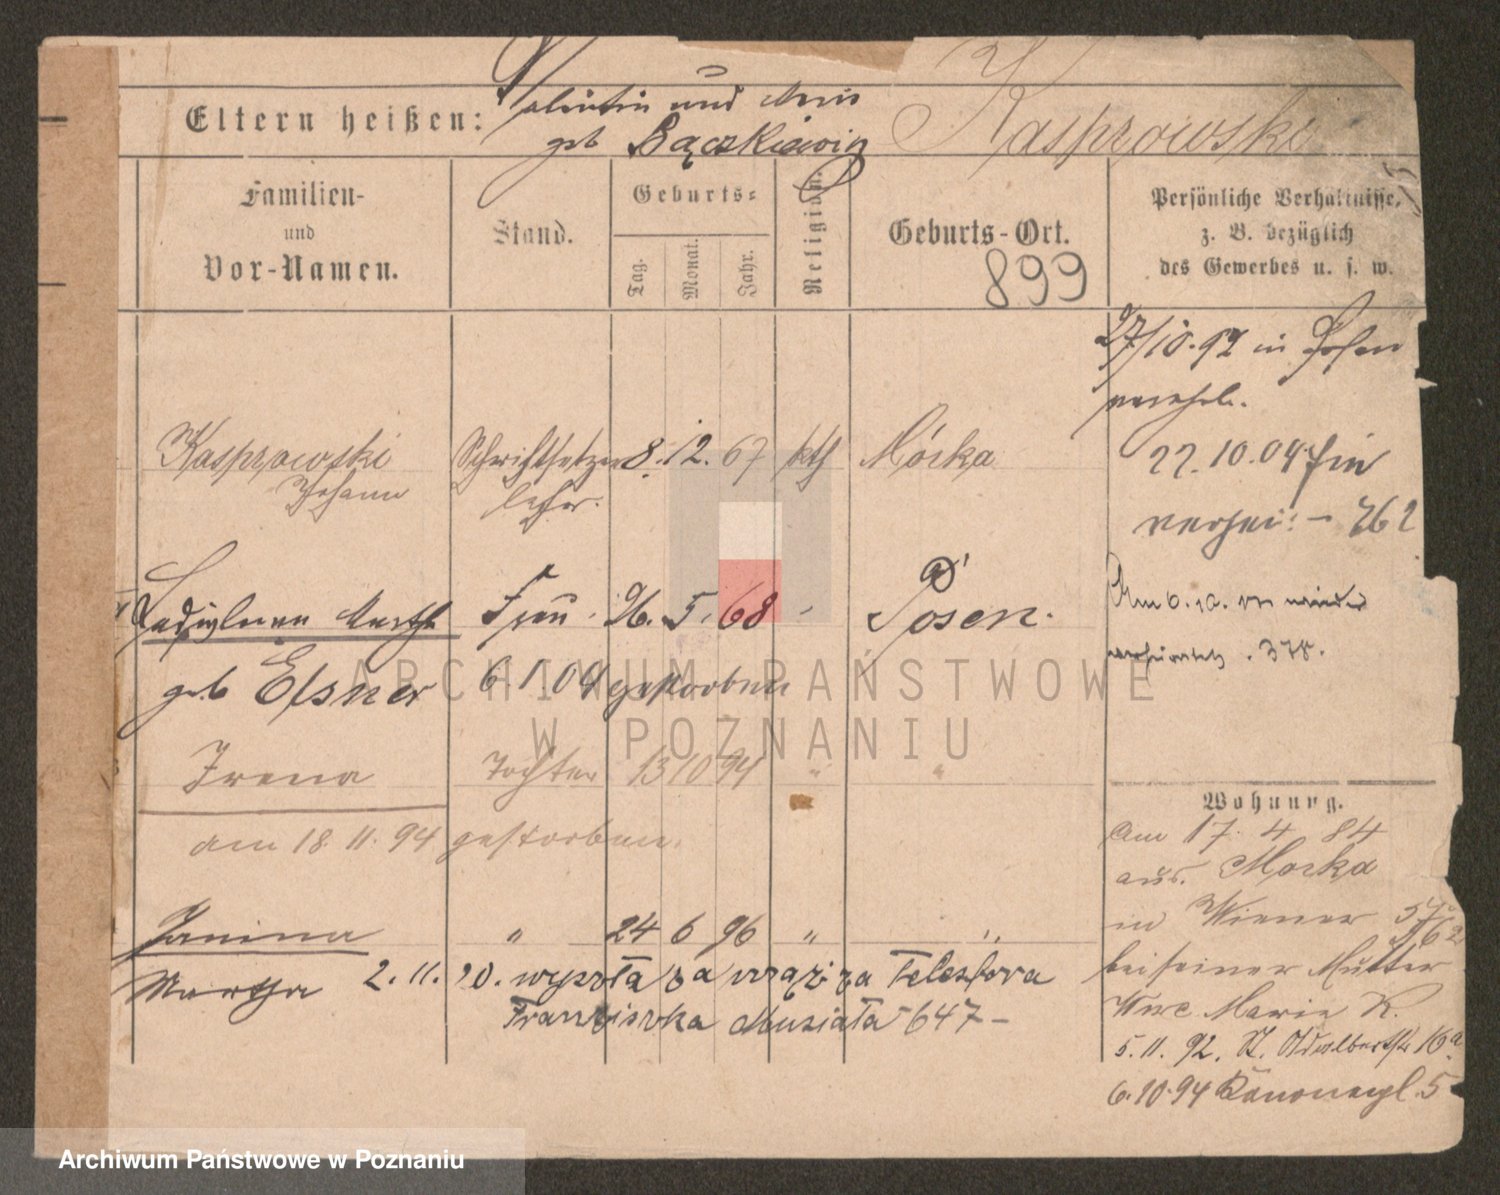 Eltern heißen: Valentin und Marie
geb Bączkiewicz
Kasprowski
Familien-
und
Vor-Namen.
Stand.
Geburts-
Tag.
Monat.
Jahr.
Religion.
Geburts-Ort.
899
Persönliche Verhältnisse,
z. B. bezüglich
des Gewerbes u. s. w.
27/10.92 in Posen
verehel.
Kasprowski Schriftsetzer 8. 12. 67 kth Mórka
Johann lehr.
22.10.09 hier
verhei: - 762
Ladislawa Martha Frau 26. 5. 68 Posen.
geb Elsner 6 1. 09 gestorben
Am 6. 10. wieder
. 378.
Irena Tochter 13 10 94 " "
am 18 11. 94 gestorben.
Wohnung.
Am 17. 4. 84
aus. Morka
in Wiener
bei seiner Mutter
Wwe. Marie K.
5. 11. 92. St. Adalbertstr 16a
6. 10. 94 Kanonenpl. 5
Janina " 24 6 96 " "
Martha 2. 11. 20. wyszła za mąż za Telesfora
Franciszka Musiała - 647 -
ARCHIWUM PAŃSTWOWE
W POZNANIU
Archiwum Państwowe w Poznaniu